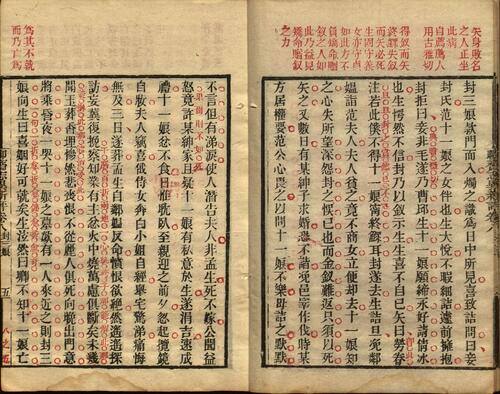 矢身敗名
之人正坐
此病
自薦薦人
用古雅切
得釵而矢
終鰥失釵
而矢必死
生固守義
女亦守貞
如此方不
員矯命贈
釵之人如
此乃益見
矯命贈釵
之力
封三娘欵門而入燭之識為日中所見喜致詰問曰妾
封氏范十一娘之女伴也生大悅不暇細詰遽前擁抱
封拒曰妾非毛遂乃曹邱生十一娘願締永好請倩冰
也生愕然不信封乃以釵示生生喜不自已矢曰勞眷
注若此僕不得十一娘寧終鰥耳封遂去生詰旦浼鄰
媼詣范夫人夫人貧之竟不商女立便却去十一娘知
之心失所望深怨封之悞已也而金釵難返只須以死
矢之又數日有某紳子求婚恐不諧浼邑宰作伐時某
方居權要范公心畏之以問十一娘不樂母詰之默默
為其不就
而乃亡為
不言但有涕淚使人潛告夫人非孟生死不嫁公聞益
怒竟許某紳家且疑十一娘有私意於生遂涓吉速成
禮十一娘忿不食日惟耽臥至親迎之前夕忽起攬鏡
自妝夫人竊喜俄侍女奔白小姐自經舉宅驚涕痛悔
無及三日遂葬孟生自鄰媼反命憤恨欲絕然遙遙探
訪妄冀復挽察知業有主忿火中燒萬慮俱斷矣未幾
聞玉葬香埋慘然悲喪恨不從麗人俱死向晚出門意
將乘昏夜一哭十一娘之墓歘有一人來近之則封三
娘向生曰喜姻好可就矣生泫然曰卿不知十一娘亡